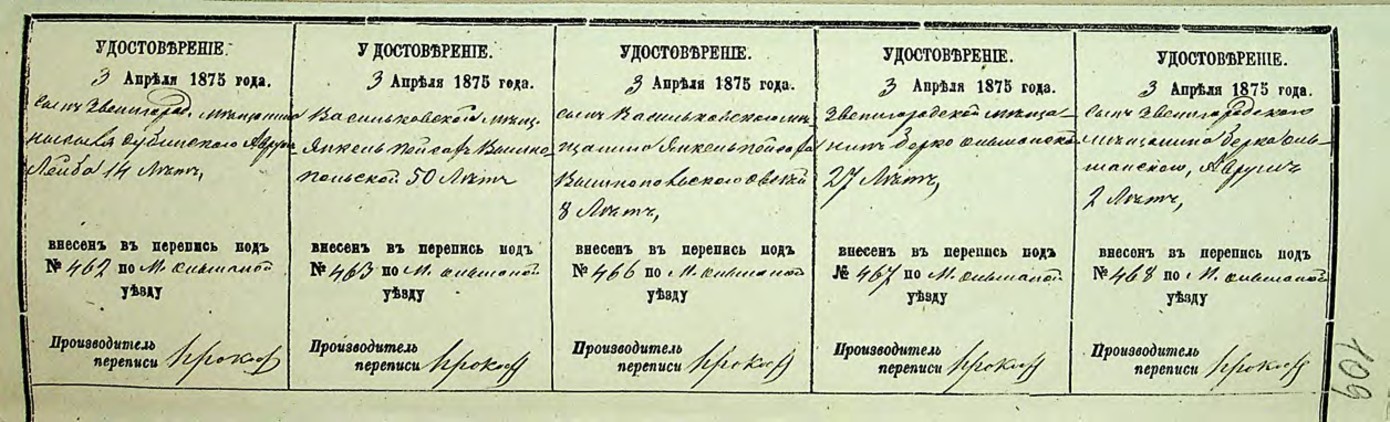 УДОСТОВѢРЕНІЕ.
3 Апрѣля 1875 года.
сынъ Звенигород. мѣщанина
Дубинского Аврумъ
Лейба 14 Лѣтъ,
внесенъ въ перепись подъ
№ 462 по М. Ольшаной
уѣзду
Производитель
переписи
УДОСТОВѢРЕНІЕ.
3 Апрѣля 1875 года.
Васильковской мѣщ.
Янкель Пейсах Вышно-
польской 50 Лѣтъ
внесенъ въ перепись подъ
№ 463 по М. Ольшаной
уѣзду
Производитель
переписи
УДОСТОВѢРЕНІЕ.
3 Апрѣля 1875 года.
сынъ Васильковского мѣ-
щанина Янкель Пейсаха
Вышнопольского
8 Лѣтъ,
внесенъ въ перепись подъ
№ 466 по М. Ольшаной
уѣзду
Производитель
переписи
УДОСТОВѢРЕНІЕ.
3 Апрѣля 1875 года.
Звенигородской мѣща-
нинъ Берко Ольшанской
27 Лѣтъ,
внесенъ въ перепись подъ
№ 467 по М. Ольшаной
уѣзду
Производитель
переписи
УДОСТОВѢРЕНІЕ.
3 Апрѣля 1875 года.
сынъ Звенигородского
мѣщанина Берка Оль-
шанского, Аврумъ
2 Лѣтъ,
внесенъ въ перепись подъ
№ 468 по М. Ольшаной
уѣзду
Производитель
переписи
109